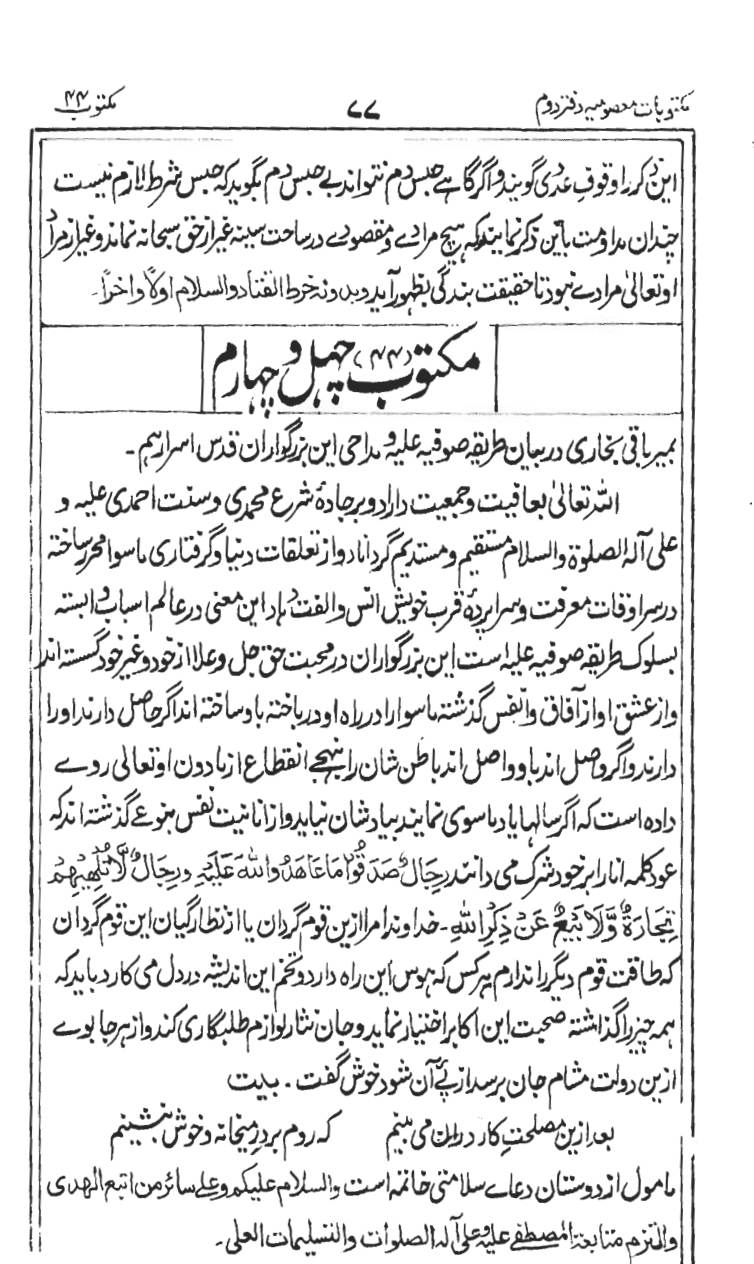 مکتوبات معصومیہ دفتر دوم ۷۷ مکتوب ۴۴
این ذکر را وقوفِ عددی گویند و اگر گاہے حبس دم نتواند بے حبس دم بگوید کہ حبس شرط لازم نیست
چندان مداومت باین ذکر نمایند کہ ہیچ مرادے و مقصودے در ساحت سینہ غیر از حق سبحانہ نماند و غیر از مراد
او تعالیٰ مرادے نبود تا حقیقت بندگی بظہور آید و بدونہ خرط القتاد و السلام اولًا و اٰخرًا۔
مکتوب (۴۴) چہل و چہارم
بمیر باقی بخاری در بیان طریقہ صوفیہ علیہ و مداحی این بزرگواران قدس اسرارہم۔
اللہ تعالیٰ بعافیت و جمعیت دارد و بر جادۂ شرع محمدی و سنت احمدی علیہ و
علی آلہ الصلوٰۃ والسلام مستقیم و مستدیم گرداناد و از تعلقات دنیا و گرفتاری ماسوا محرر ساختہ
در سرادقات معرفت و سراپردۂ قرب خویش انس و الفت دہاد این معنی در عالم اسباب وابستہ
بسلوک طریقہ صوفیہ علیہ است این بزرگواران در محبت حق جل وعلا از خود و غیر خود گسستہ اند
و از عشق او از آفاق و انفس گذشتہ ماسوا را در راہ او در باختہ با او ساختہ اند اگر حاصل دارند او را
دارند و اگر واصل اند باو واصل اند باطن شان را بنہجے انقطاع از مادون او تعالیٰ روے
دادہ است کہ اگر سالہا یاد ماسوی نمایند بیاد شان نیاید و از انانیت نفس بنوعے گذشتہ اند کہ
عود کلمہ انا را بر خود شرک می دانند رِجَالٌ صَدَقُوْا مَا عَاهَدُوا اللهَ عَلَيْهِ و رِجَالٌ لَّا تُلْهِيْهِمْ
تِجَارَةٌ وَّلَا بَيْعٌ عَنْ ذِكْرِ اللهِ۔ خداوندا مرا ازین قوم گردان یا از نظارگیان این قوم گردان
کہ طاقت قوم دیگر را ندارم ہر کس کہ ہوس این راہ دارد و تخم این اندیشہ در دل می کارد باید کہ
ہمہ چیز را گذاشتہ صحبت این اکابر اختیار نماید و جان نثار لوازم طلبگاری کند و از ہر جا بوے
ازین دولت مشام جان برسد از پئے آن شود خوش گفت۔ بیت
بعد ازین مصلحتِ کار دران می بینم کہ روم بر درِ میخانہ و خوش بنشینم
مامول از دوستان دعاے سلامتی خاتمہ است والسلام علیکم و علے سائر من اتبع الہدی
والتزم متابعة المصطفے علیہ و علی آلہ الصلوات والتسلیمات العلی۔